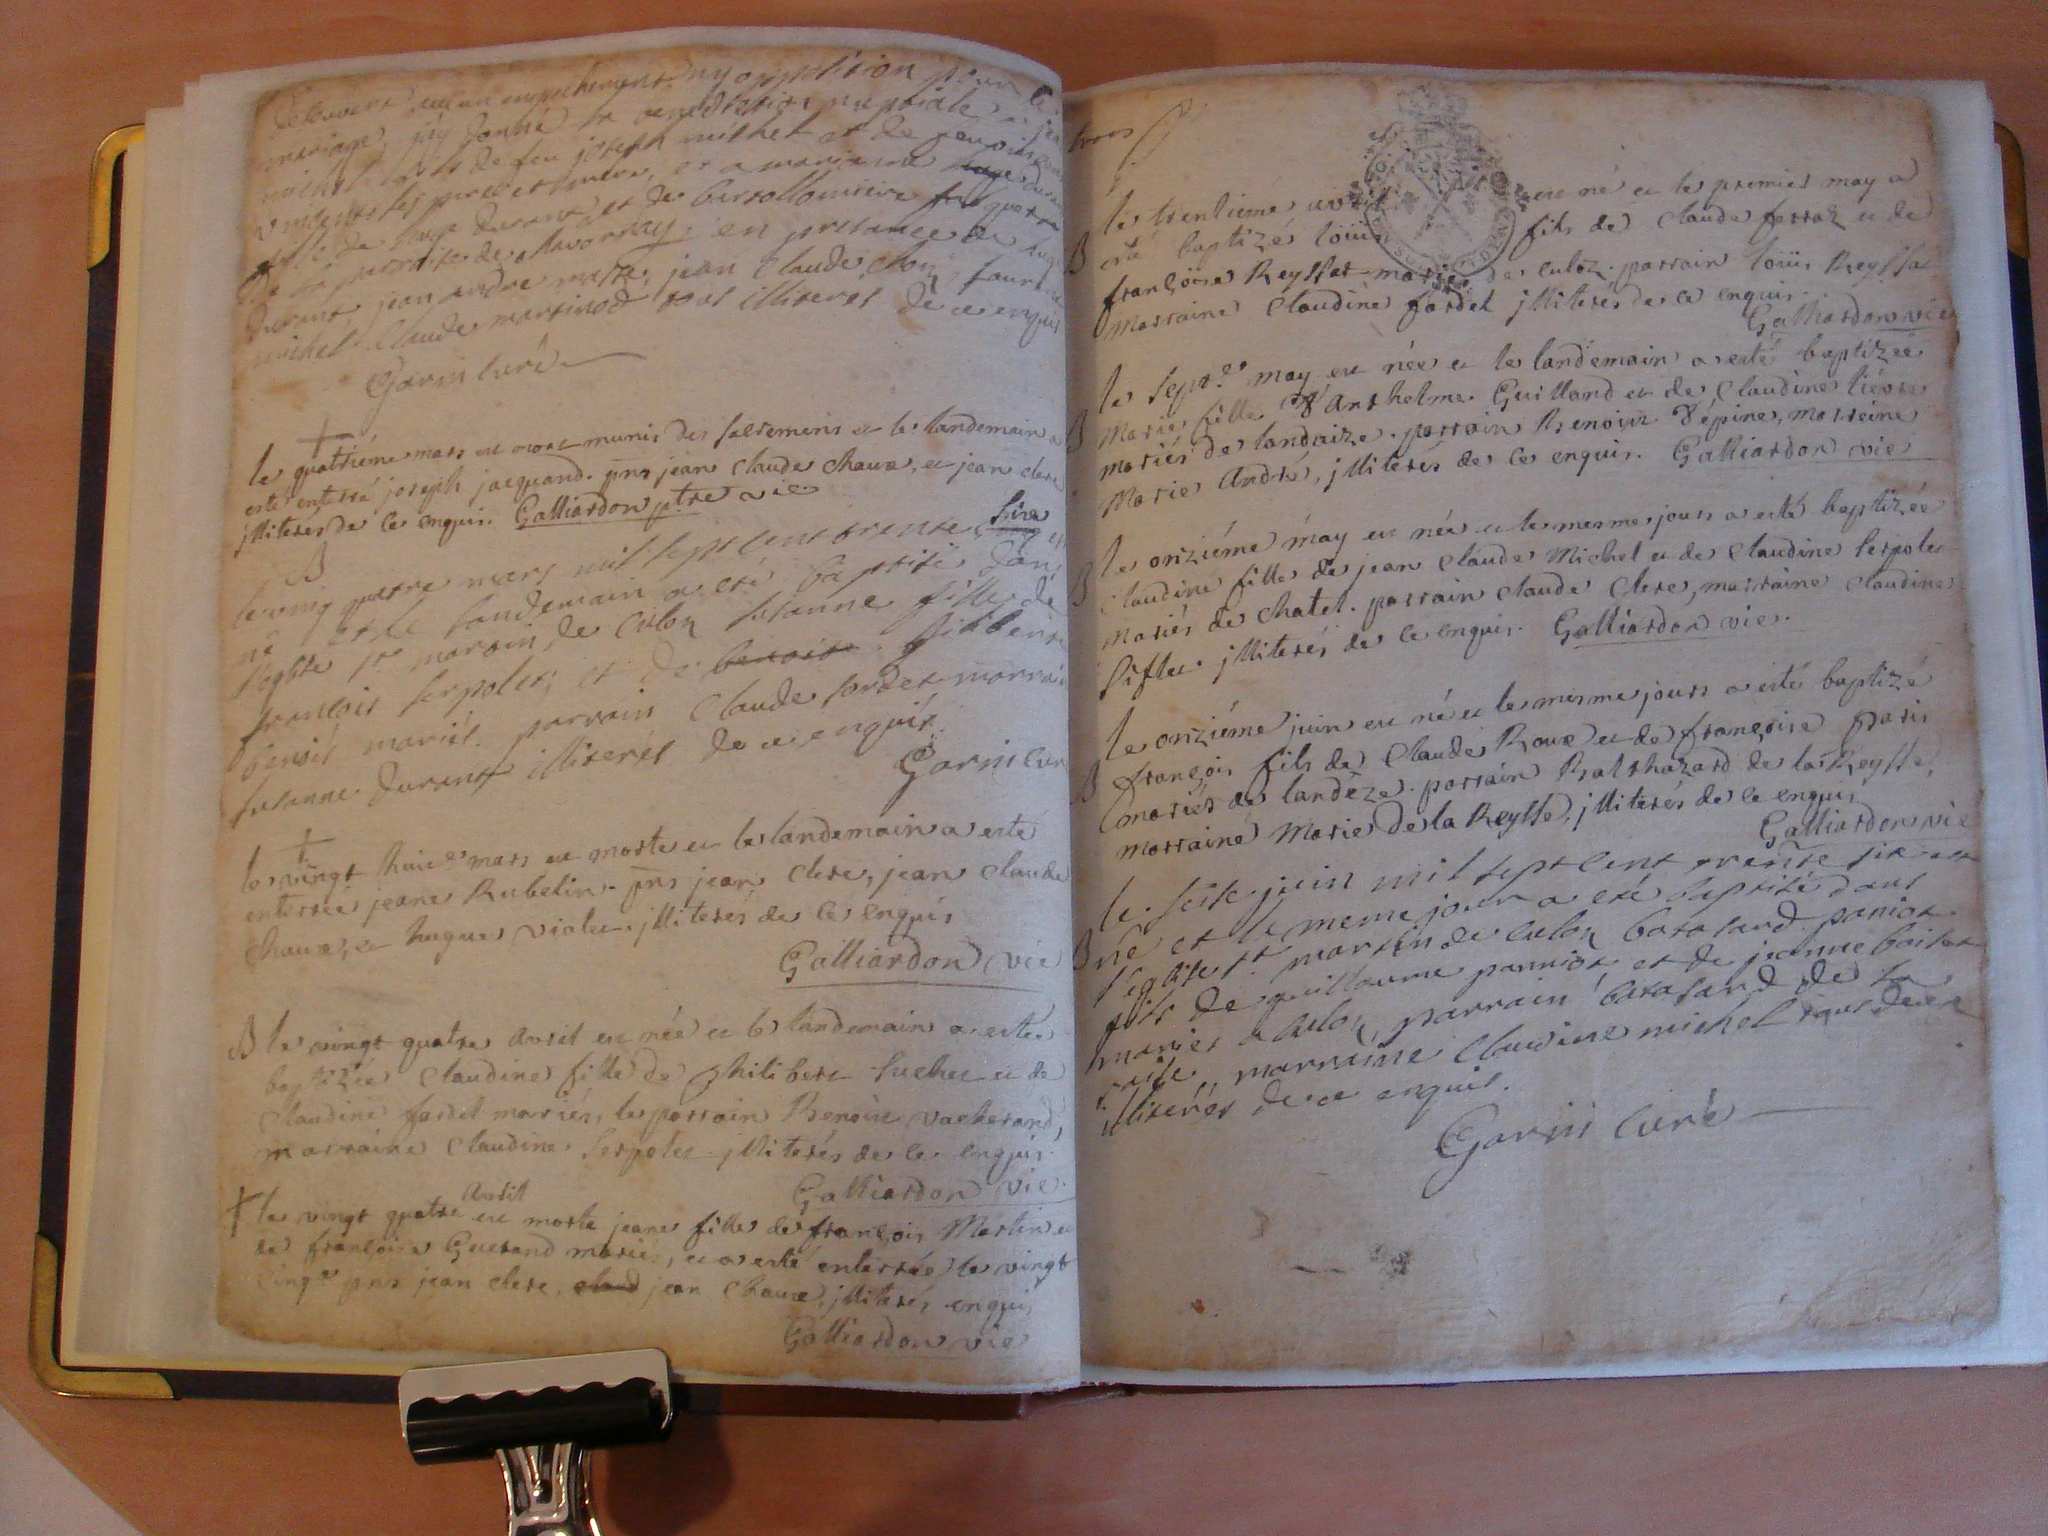 decouvert aucun empechement, ny opposition pour le
mariage, j'ay donné la benediction nuptiale a jean
michel fils de feu joseph michel et de
ses pere et mere, et a marianne
fille de durant et de
de la paroisse de en presance de
durant, jean andre jean claude laurent
michel Claude martinod tous illiterés de ce enquis
Garin Curé
le quatriéme mars est mort munis des sacremens et le landemain a
esté enterré joseph jacquand. pns jean claude chaux, et jean clerc
jlliterés de ce enquis. Galliardon ptre vic
B
le vingt quatre mars mil sept cent trente six est
né et le landemain a eté baptisé dans
l'eglise st. martin, de culoz susanne fille de
françois serpolet, et de philiberte
benoit mariés. parrain Claude fordet marraine
susanne durant illiterés de ce enquis.
Garin Curé
le vingt huict.e mars est morte et le landemain a esté
enterrée jeane Rubelin. pns jean clerc, jean claude
chaux, et hugues violet. jlliterés de ce enquis
Galliardon vic
B le vingt quatre avril est née et le landemain a esté
baptizée claudine fille de philibert Suchet et de
Claudine fordet mariés, le parrain Benoit vacherand,
marraine claudine Serpolet jlliterés de ce enquis.
Galliardon vic.
avril
le vingt quatre est morte jeane fille de françois Martin et
de françoise Guerand mariés, et a esté enterrée le vingt
cinq.e pns jean clerc, jean chaux, jlliterés enquis
Galliardon vic
trois
le trentiéme avril est né et le premier may a
B esté baptizé loüis fils de Claude ferraz et de
françoise Reyssat mariés de culoz. parrain loüis Reyssat
marraine Claudine fordet jlliterés de ce enquis.
Galliardon vic
le sept.e may est née et le landemain a esté baptizée
B Marie fille d'Anthelme Guilland et de Claudine liévre
mariés de landaize. parrain Benoit d'épine, marreine
Marie André, jlliterés de ce enquis. Galliardon vic
le onziéme may est née et le mesme jour a esté baptizée
B Claudine fille de jean Claude Michel et de Claudine Serpolet
mariés de chatel. parrain claude clerc, marraine claudine
Siflet jlliterés de ce enquis. Galliardon vic.
le onziéme juin est né et le mesme jour a esté baptizé
B françois fils de Claude Roux et de françoise paris
mariés de landèze. parrain Balthazard de la Reysse,
marraine Marie de la Reysse, jlliterés de ce enquis
Galliardon vic
le seize juin mil sept cent trente six est
B né et le meme jour a eté baptisé dans
l'eglise st. martin de culoz batasard paniot
fils de guillaume panniot, et de jeanne boiset
mariés a culoz, parrain batasard de la
raise, marraine claudine michel tous deux
illiterés de ce enquis.
Garin Curé